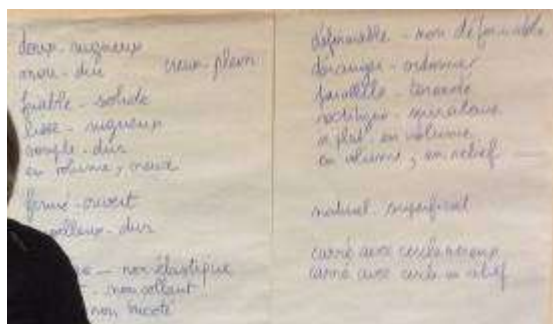 doux - rugueux
mou - dur
creux - plein
friable - solide
lisse - rugueux
souple - dur
en volume, creux
fermé - ouvert
- dur
- non élastique
- non collant
non tricoté
déformable - non déformable
déranger - ordonner
parallèle -
rectiligne -
à plat - en volume
en volume, en relief
naturel - superficiel
carré avec cercle
carré avec cercle en relief